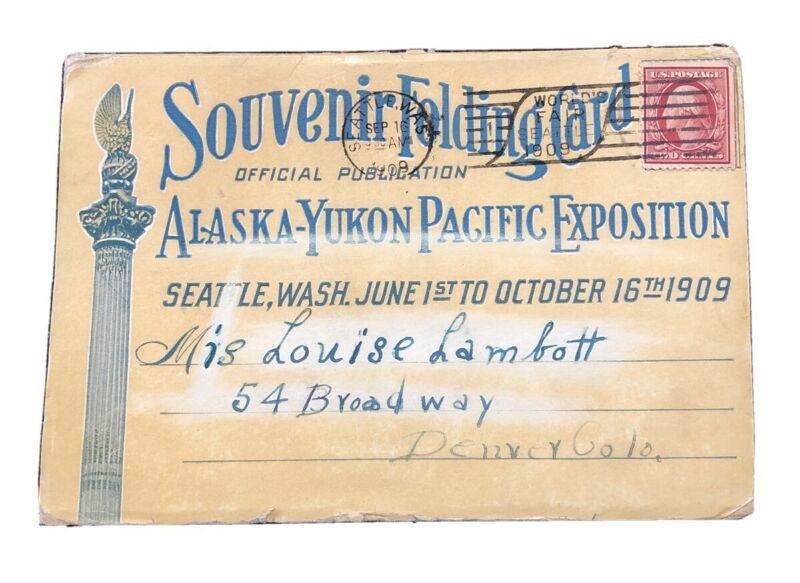 Souvenir Folding Card
OFFICIAL PUBLICATION
ALASKA-YUKON PACIFIC EXPOSITION
SEATTLE, WASH. JUNE 1ST TO OCTOBER 16TH 1909
SEATTLE, WASH.
SEP 16
AM
1909
WORLD'S
FAIR
SEATTLE
1909
U.S. POSTAGE
TWO CENTS
Mis Louise Lambott
54 Broadway
Denver Colo.